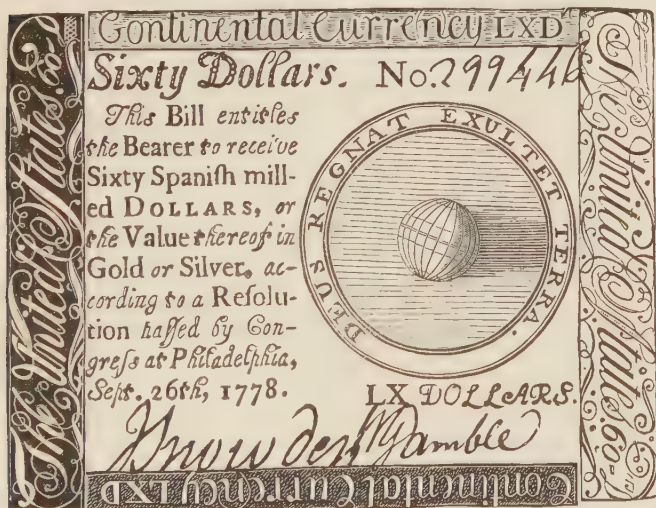 Continental Currency LXD
Sixty Dollars. No. 299446
This Bill entitles
the Bearer to receive
Sixty Spaniſh mill-
ed DOLLARS, or
the Value thereof in
Gold or Silver, ac-
cording to a Reſolu-
tion paſſed by Con-
greſs at Philadelphia,
Sept. 26th, 1778.
DEUS REGNAT EXULTET TERRA.
LX DOLLARS.
Snowden Wm Gamble
Continental Currency LXD
The United States. 60
The United States. 60